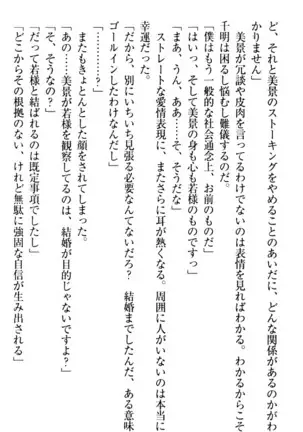 ど、それと美景のストーキングをやめることのあいだに、どんな関係があるのかがわ
かりません」
　美景が冗談や皮肉を言ってるわけでないのは表情を見ればわかる。わかるからこそ
千明は困るし悩むし難儀するのだ。
「僕はもう一般的な社会通念上、お前のものだ」
「はいっ。そして美景の身も心も若様のものですっ」
「まあ、うん、ああ……そ、そうだな」
　ストレートな愛情表現に、またさらに耳が熱くなる。周囲に人がいないのは本当に
幸運だった。
「だから、別にいちいち見張る必要なんてないだろ？　結婚までしたんだ、ある意味
ゴールインしたわけなんだし」
「………？」
　またもきょとんとした顔をされてしまった。
「あの……美景が若様を観察してるのは、結婚が目的じゃないですよ？」
「そ、そうなの？」
「だって若様と結ばれるのは既定事項でしたし」
「どこからその根拠のない、けれど無駄に強固な自信が生み出される」